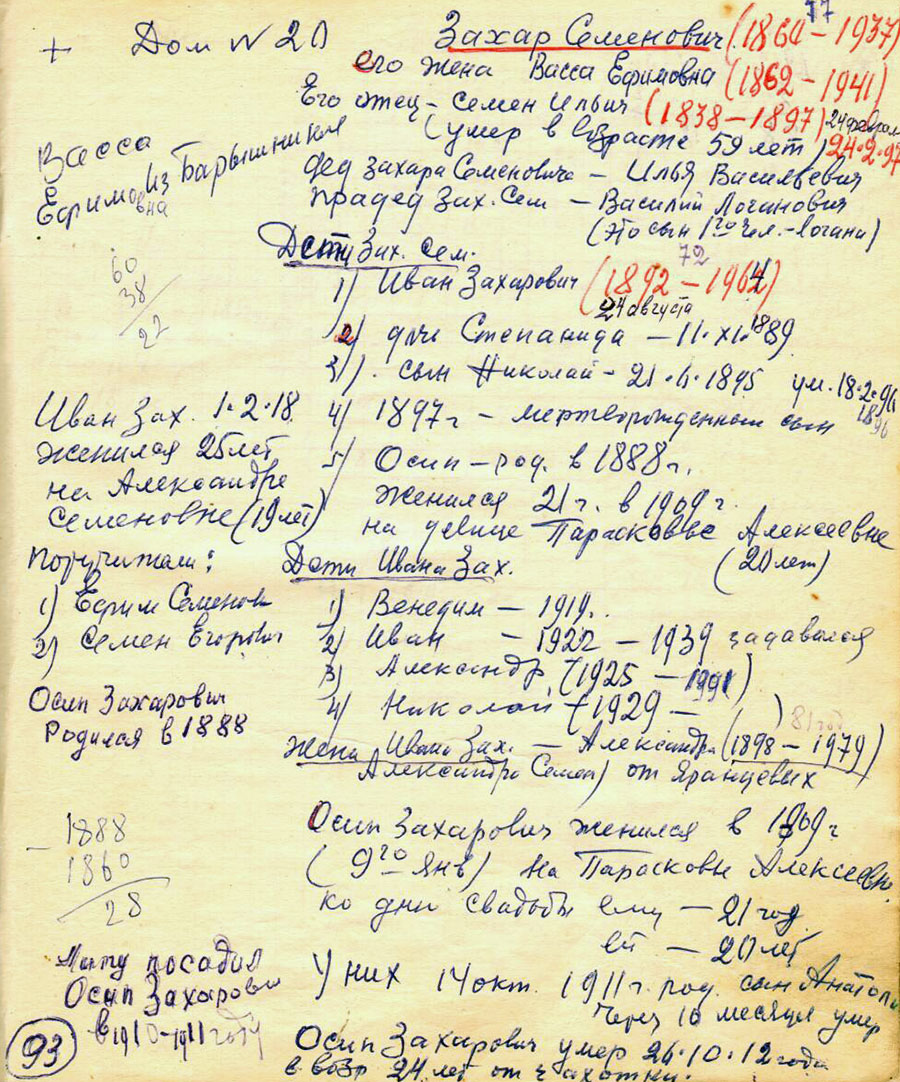 77
+ Дом N 20 Захар Семенович (1860 – 1937)
его жена Васса Ефимовна (1862 – 1941)
Его отец – Семен Ильич (1838 – 1897) 24 феврал
(умер в возрасте 59 лет) 24.2.97
Васса
Ефимовна
из Барышников
дед Захара Семеновича – Илья Васильевич
прадед Зах. Сем – Василий Логанович
(это сын 1го чел. – Логани)
Дети Зах. Сем.
72
1) Иван Захарович (1892 – 1964)
24 августа
60
38
22
2) дочь Степанида – 11.XI.1889
3) сын Николай – 21. .1895 ум. 18.2.96
1896
4) 1897г – мертворожденный сын
5) Осип – род. в 1888г.
женился 21г. в 1909г.
на девице Парасковье Алексеевне
(20 лет)
Иван Зах. 1.2.18
женился 25 лет
на Александре
Семеновне (19 лет)
Поручители:
1) Ефим Семенов
2) Семен Егорович
Дети Ивана Зах.
1) Венедим – 1919.
2) Иван – 1922 – 1939 задавился
3) Александр (1925 – 1991)
4) Николай (1929 – )
81 год
Жена Ивана Зах. – Александра (1898 – 1979)
Александра Семен) от Яранцевых
Осип Захарович
Родился в 1888
Осип Захарович женился в 1909г
(9го янв) на Парасковье Алексеевн.
ко дню свадьбы ему – 21 год
ей – 20 лет
– 1888
1860
28
У них 14 окт. 1911г. род. сын Анатоли
Через 10 месяцев умер
Осип Захарович умер 26.10.12 года
в возр 24 лет от чахотки.
посадил
Осип Захарович
в 1910–1911 году
93